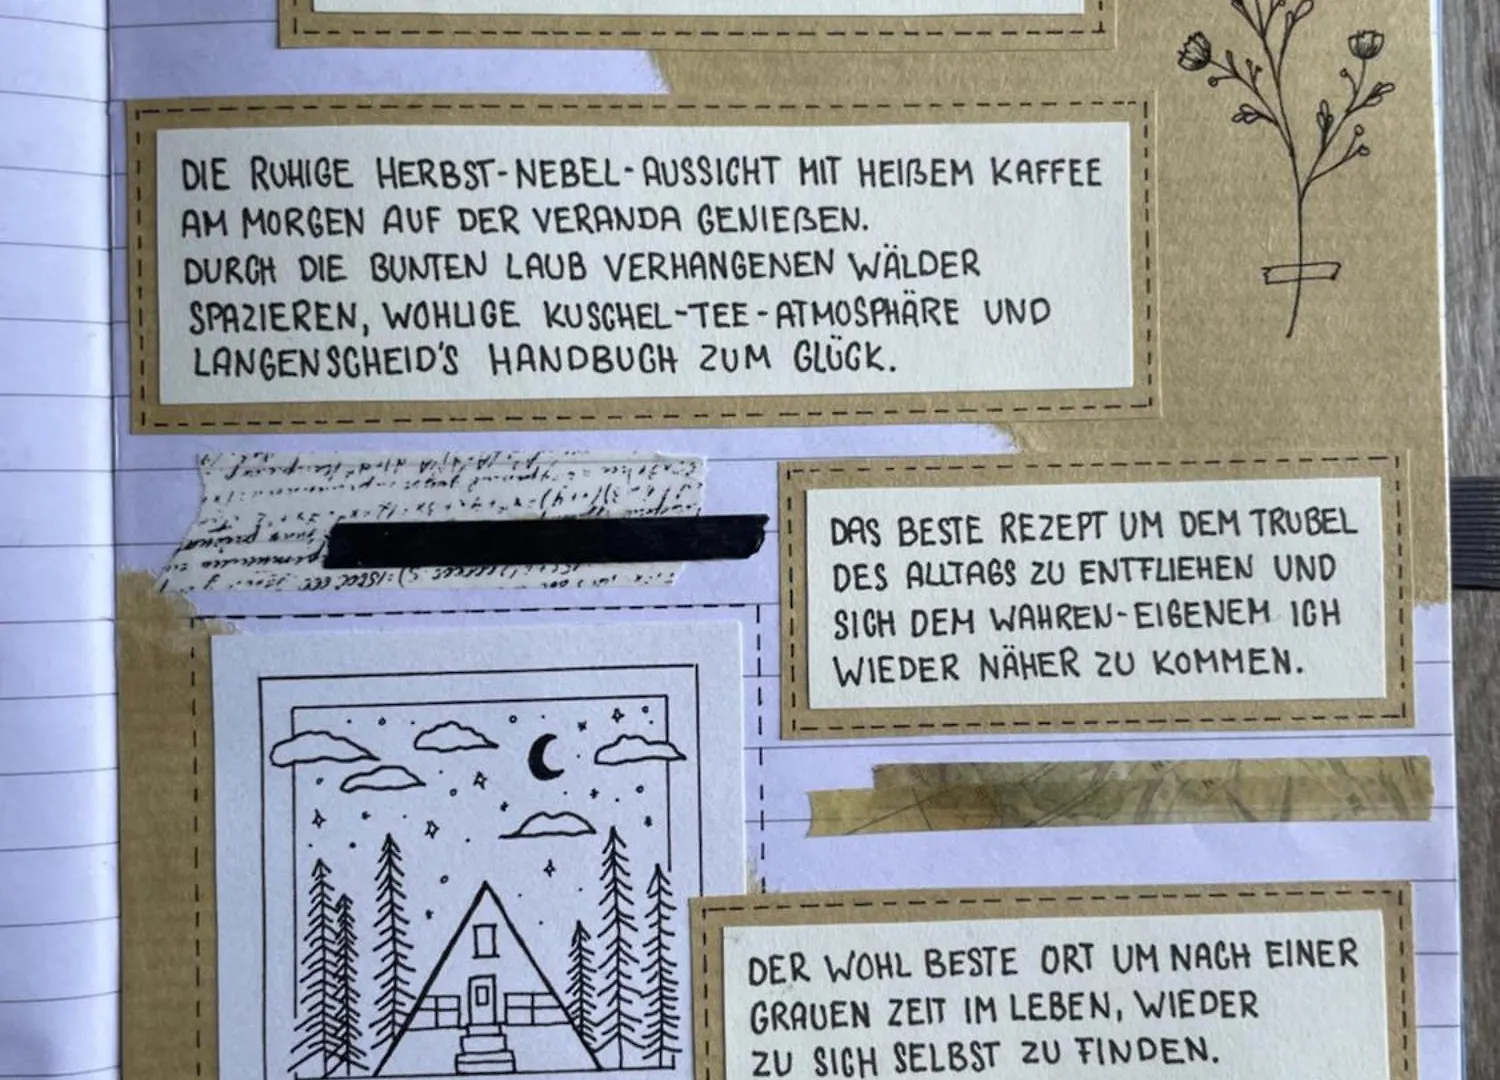 DIE RUHIGE HERBST-NEBEL-AUSSICHT MIT HEIßEM KAFFEE
AM MORGEN AUF DER VERANDA GENIEßEN.
DURCH DIE BUNTEN LAUB VERHANGENEN WÄLDER
SPAZIEREN, WOHLIGE KUSCHEL-TEE-ATMOSPHÄRE UND
LANGENSCHEID'S HANDBUCH ZUM GLÜCK.
DAS BESTE REZEPT UM DEM TRUBEL
DES ALLTAGS ZU ENTFLIEHEN UND
SICH DEM WAHREN-EIGENEM ICH
WIEDER NÄHER ZU KOMMEN.
DER WOHL BESTE ORT UM NACH EINER
GRAUEN ZEIT IM LEBEN, WIEDER
ZU SICH SELBST ZU FINDEN.